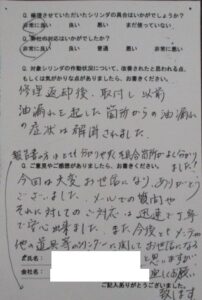 Q. 修理させていただいたシリンダの具合はいかがでしょうか？
非常に良い 良い 普通 悪い まだ使っていない
Q. 弊社の対応はいかがでしたか？
非常に良い 良い 普通 悪い 非常に悪い
Q. 対象シリンダの作動状況について、改善されたと思われる点、
もしくは気がかりな点がありましたら、お書きください。
修理返却後、取付し以前
油漏れを起した箇所からの油漏れ
の症状は解消されました。
報告書の方はとても分かりやすく不具合箇所がよく分かり
ました！
Q. ご意見やご感想がありましたら、お書きください。
今回は大変お世話になり、ありがとう
ございました。メールでの質問や
それに対してのご対応は迅速丁寧
で安心出来ました。また今後とも
他の シリンダーに関してお世話になる
と思いますが
氏名：
会社名：
宜しくお願
ご記入ありがとうございました
致します